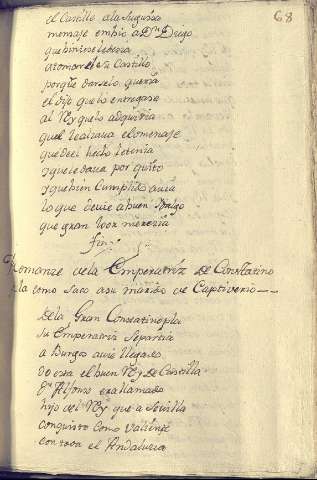 68
el Castillo a la Augusta
mensaje embio a Dn Diego
que biniese le decia
a tomar el su Castillo
porque darselo queria
el dijo que lo entregase
al Rey que lo adquiria
quel le alçaua el omenaje
que del hecho le tenia
y que le daua por quito
y que bien Cumplido auia
lo que deuie a buen hidalgo
que gran loor merezia
fin
Romanze de la Emperatriz de Constatino
pla como saco a su marido de Captiverio
De la Gran Constatinopla
su Emperatriz se partia
a Burgos auie llegado
do esta el buen Rey de Castilla
Dn Alfonso era llamado
hijo del Rey que a Sevilla
conquisto como valiente
con toda el Andaluzia